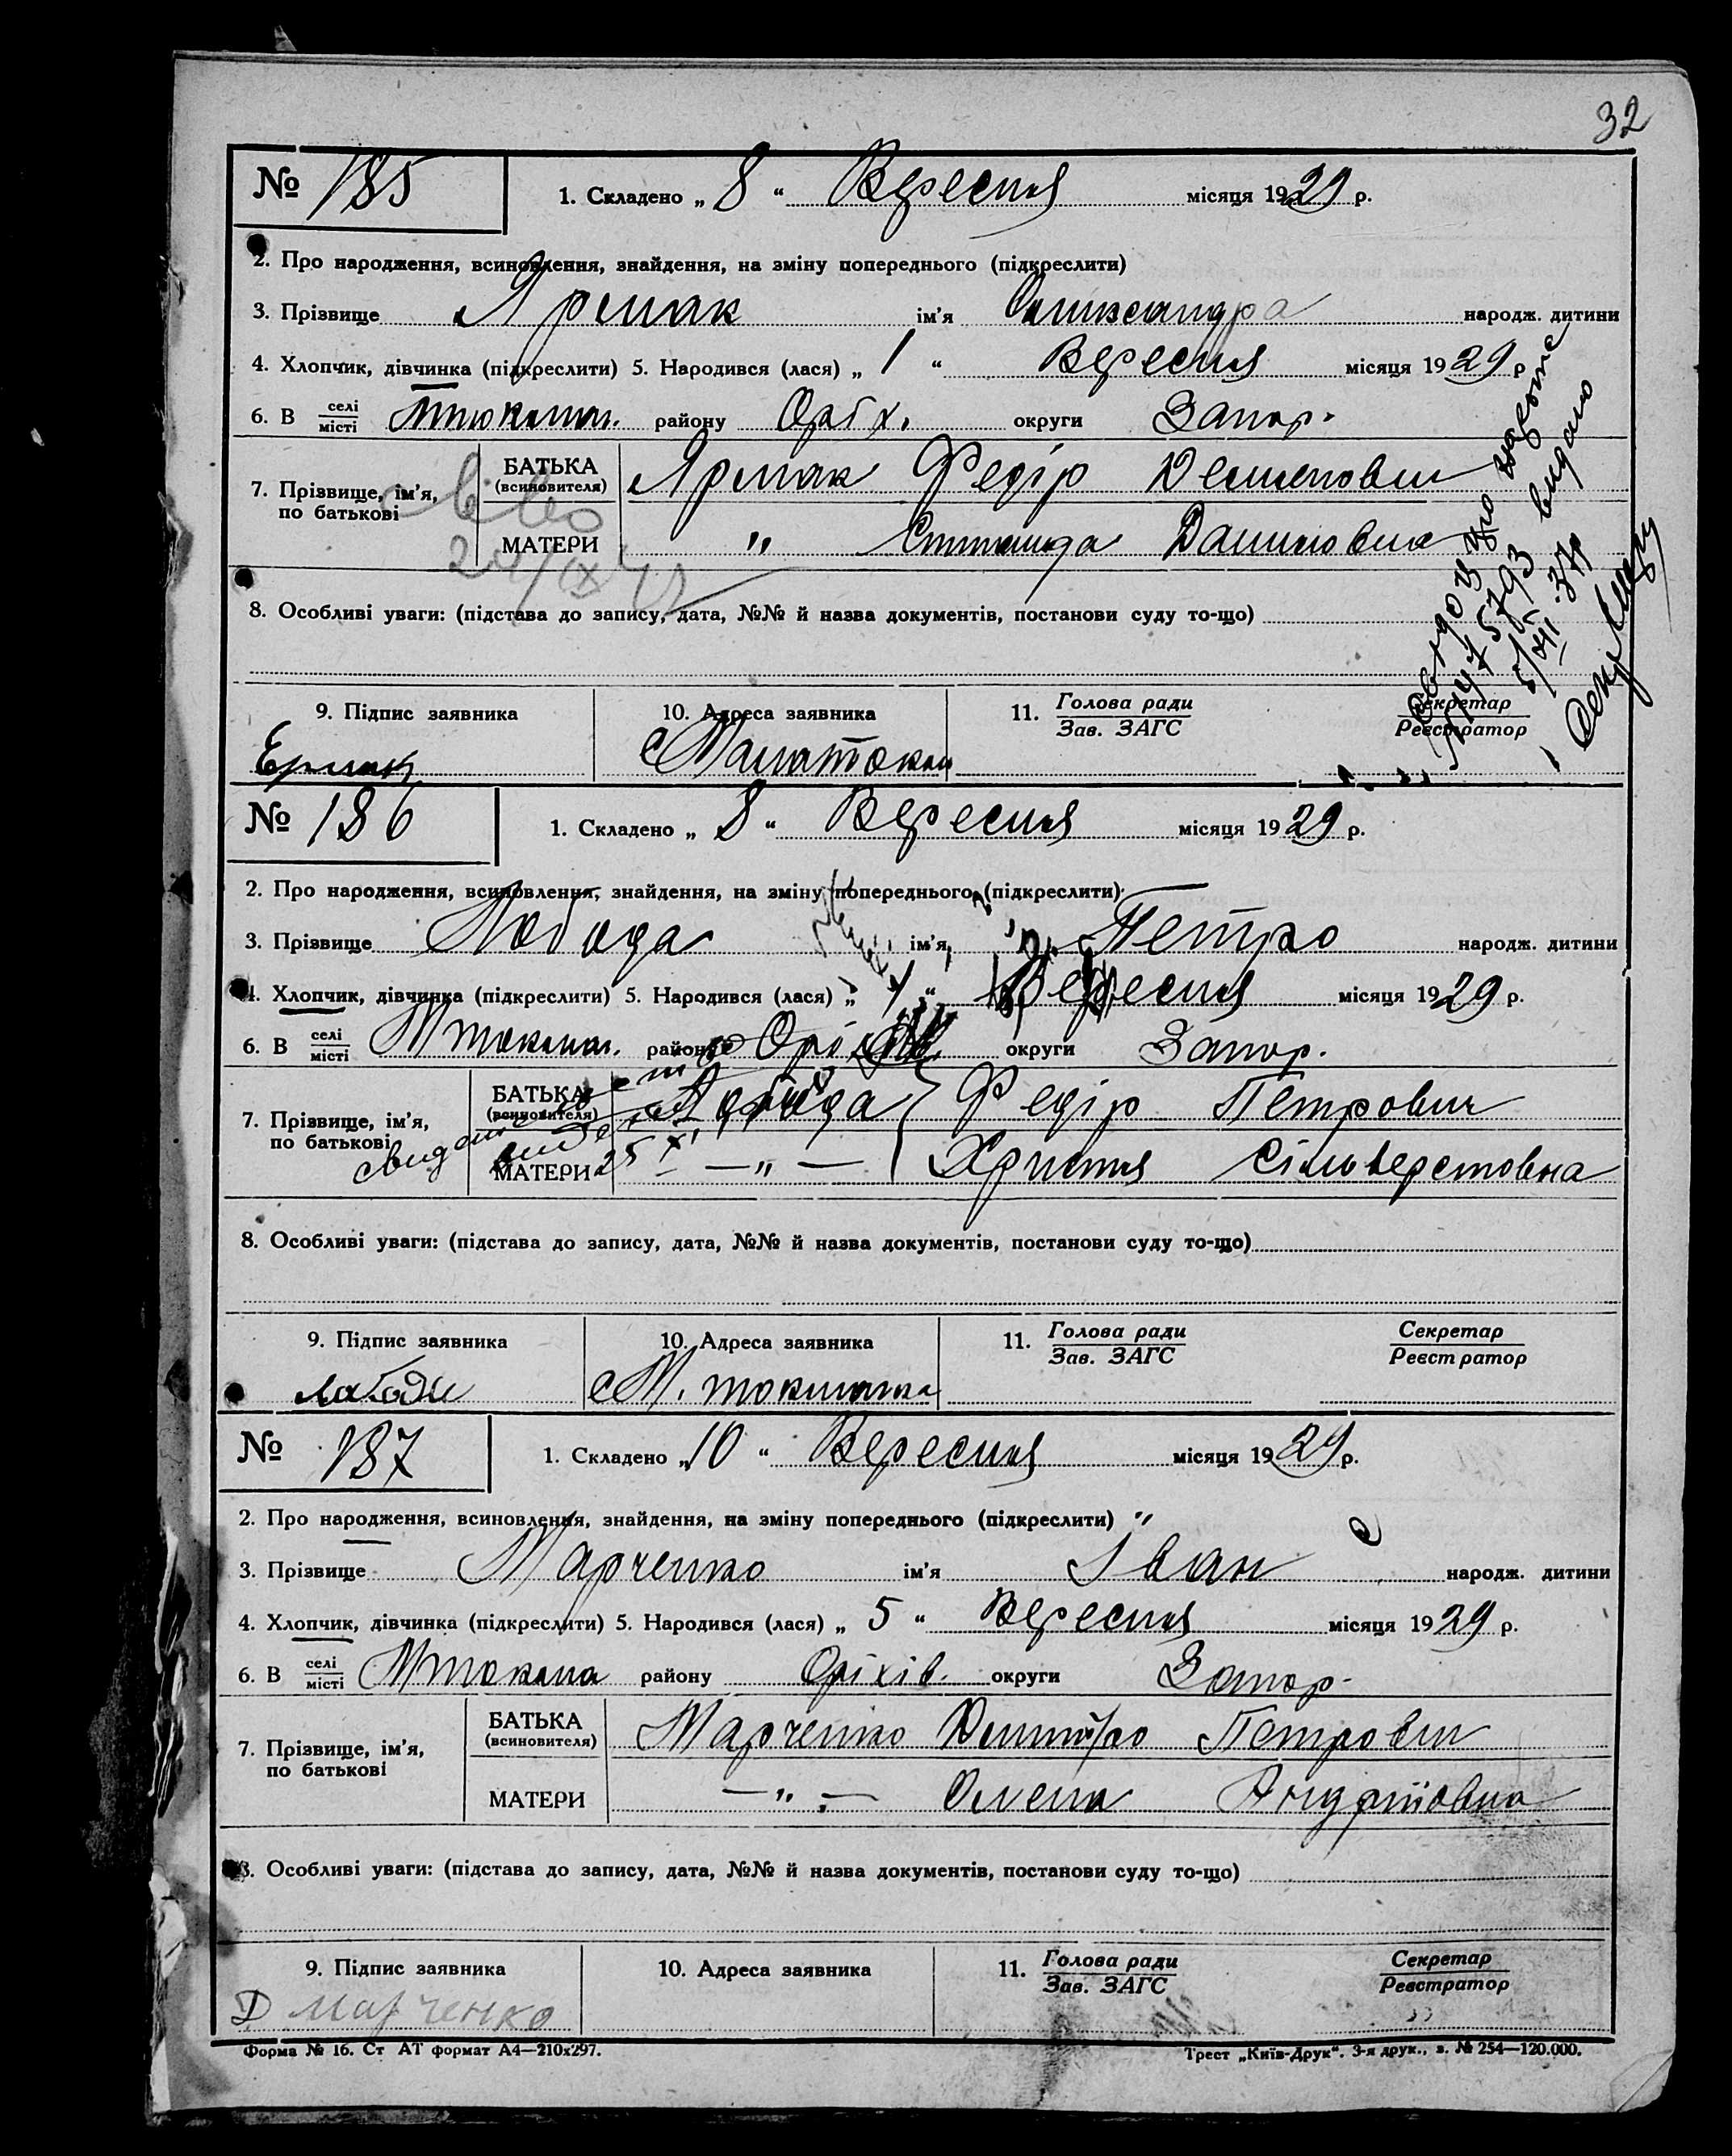 32
№ 185 1. Складено „ 8 “ Вересня місяця 1929 р.
2. Про народження, всиновлення, знайдення, на зміну попереднього (підкреслити)
3. Прізвище Ярмак ім'я Олександра народж. дитини
4. Хлопчик, дівчинка (підкреслити) 5. Народився (лася) „ 1 “ Вересня місяця 1929 р
6. В селі/місті Мтокмач. району Оріх. округи Запор.
7. Прізвище, ім'я, по батькові
БАТЬКА (всиновителя) Ярмак Федір Демидович
МАТЕРИ „ Даниловна
8. Особливі уваги: (підстава до запису, дата, №№ й назва документів, постанови суду то-що)
видано
9. Підпис заявника 10. Адреса заявника 11. Голова ради/Зав. ЗАГС Секретар/Реєстратор
Ермак с Малатокма
№ 186 1. Складено „ 8 “ Вересня місяця 1929 р.
2. Про народження, всиновлення, знайдення, на зміну попереднього (підкреслити)
3. Прізвище Лобода ім'я Петро народж. дитини
4. Хлопчик, дівчинка (підкреслити) 5. Народився (лася) „ 1 “ Вересня місяця 1929 р.
6. В селі/місті Мтокмач. району Оріхів. округи Запор.
7. Прізвище, ім'я, по батькові
БАТЬКА (всиновителя) Лобода Федір Петрович
МАТЕРИ —„— Христя Сільверстовна
8. Особливі уваги: (підстава до запису, дата, №№ й назва документів, постанови суду то-що)
9. Підпис заявника 10. Адреса заявника 11. Голова ради/Зав. ЗАГС Секретар/Реєстратор
Лобода с М. токмачка
№ 187 1. Складено „10 “ Вересня місяця 1929 р.
2. Про народження, всиновлення, знайдення, на зміну попереднього (підкреслити)
3. Прізвище Марченко ім'я Іван народж. дитини
4. Хлопчик, дівчинка (підкреслити) 5. Народився (лася) „ 5 “ Вересня місяця 1929 р.
6. В селі/місті Мтокма району Оріхів. округи Запор.
7. Прізвище, ім'я, по батькові
БАТЬКА (всиновителя) Марченко Дмитро Петрович
МАТЕРИ —„— Олена Андріївна
8. Особливі уваги: (підстава до запису, дата, №№ й назва документів, постанови суду то-що)
9. Підпис заявника 10. Адреса заявника 11. Голова ради/Зав. ЗАГС Секретар/Реєстратор
Д Марченко
Форма № 16. Ст АТ формат А4—210х297. Трест „Київ-Друк“. 3-я друк., з. № 254—120.000.